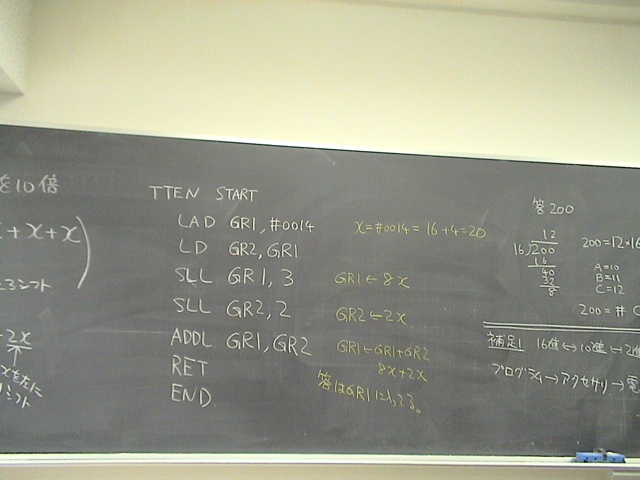 を10倍
+x+x)
3シフト
2x
xを左に
1シフト
TTEN START
LAD GR1, #0014
LD GR2, GR1
SLL GR1, 3
SLL GR2, 2
ADDL GR1, GR2
RET
END
x=#0014=16+4=20
GR1←8x
GR2←2x
GR1←GR1+GR2
8x+2x
答はGR1に入る。
答200
12
16)200
16
40
32
8
200=12×16
A=10
B=11
C=12
200=#C
補足1 16進↔10進↔2進
プログラム→アクセサリ→電